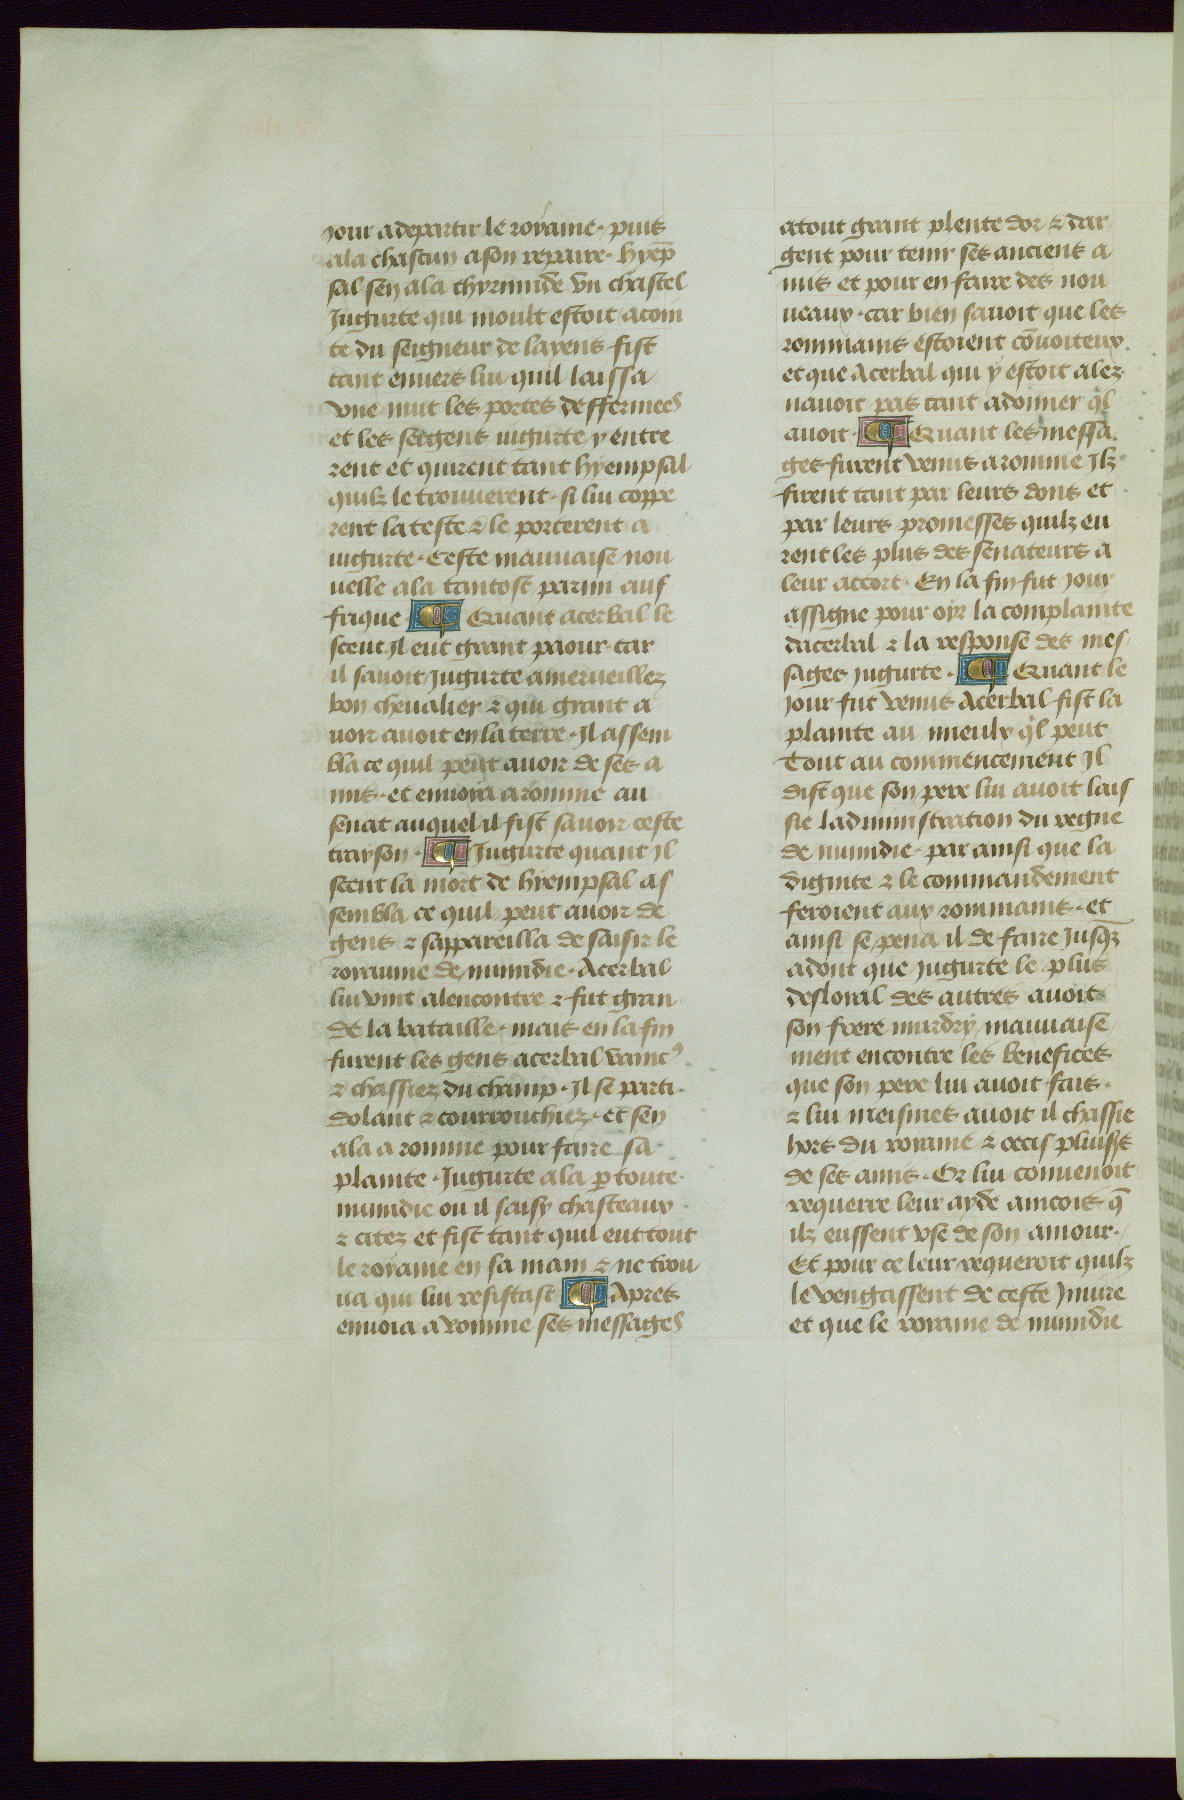 jour adepartir le royaume. puis
ala chascun ason repaire. hyep̄
sal sen ala thyrmide vn chastel
Jugurte qui moult estoit acoin
te du seigneur de layens fist
tant enuers lui quil laissa
vne nuit les portes deffermees
et les sergens iugurte y entre
rent et quirent tant hyempsal
quilz le trouuerent. si lui coppe
rent la teste ⁊ le porterent a
iugurte. Ceste mauuaise nou
uelle ala tantost parmi auf
frique ¶ Quant acerbal le
sceut Jl eut grant paour. car
il sauoit Jugurte amerueillez
bon cheualier ⁊ qui grant a
uoir auoit en la terre. Jl assem
bla ce quil peut auoir de ses a
mis. et enuoia aromme au
senat auquel il fist sauoir ceste
trayson. ¶ Jugurte quant il
sceut la mort de hyempsal as
sembla ce quil peut auoir de
gens ⁊ sappareilla de saisir le
royaume de numidie. Acerbal
lui vint alencontre ⁊ fut gran
de la bataille. mais en la fin
furent les gens acerbal vaincꝰ
⁊ chassiez du champ. Jl se parti
dolant ⁊ courrouchiez. et sen
ala a romme pour faire sa
plainte. Jugurte ala ꝑ toute
numidie ou il saisy chasteaux
⁊ citez et fist tant quil eut tout
le royame en sa main ⁊ ne trou
ua qui lui resistast ¶ Apres
enuoia a romme ses messages
atout grant plente dor ⁊ dar
gent pour tenir ses anciens a
mis et pour en faire des nou
ueaux. car bien sauoit que les
rommains estoient cōuoiteux
et que Acerbal qui y estoit alez
nauoit pas tant adonner q̄l
auoit. ¶ Quant les messa
ges furent venus aromme Jlz
firent tant par leurs dons et
par leurs promesses quilz eu
rent les plus des senateurs a
leur accort. En la fin fut jour
assigne pour oyr la complainte
dacerbal ⁊ la response des mes
sages iugurte. ¶ Quant le
jour fut venus Acerbal fist la
plainte au mieulx q̄l peut
Tout au commencement Jl
dist que son pere lui auoit lais
sie ladministration du regne
de numidie. par ainsi que la
diginte ⁊ le commandement
seroient aux rommains. et
ainsi se pena il de faire Jusq̄z
adont que Jugurte le plus
desloial des autres auoit
son frere murdry mauuaise
ment encontre les benefices
que son pere lui auoit fais.
⁊ lui meismes auoit il chassie
hors du royame ⁊ occis pluiss̄
de ses amis. Or lui conuenoit
requerre leur ayde aincois q̄
ilz eussent vse de son amour.
Et pour ce leur requeroit quilz
le vengassent de ceste Jniure
et que le royame de numidie